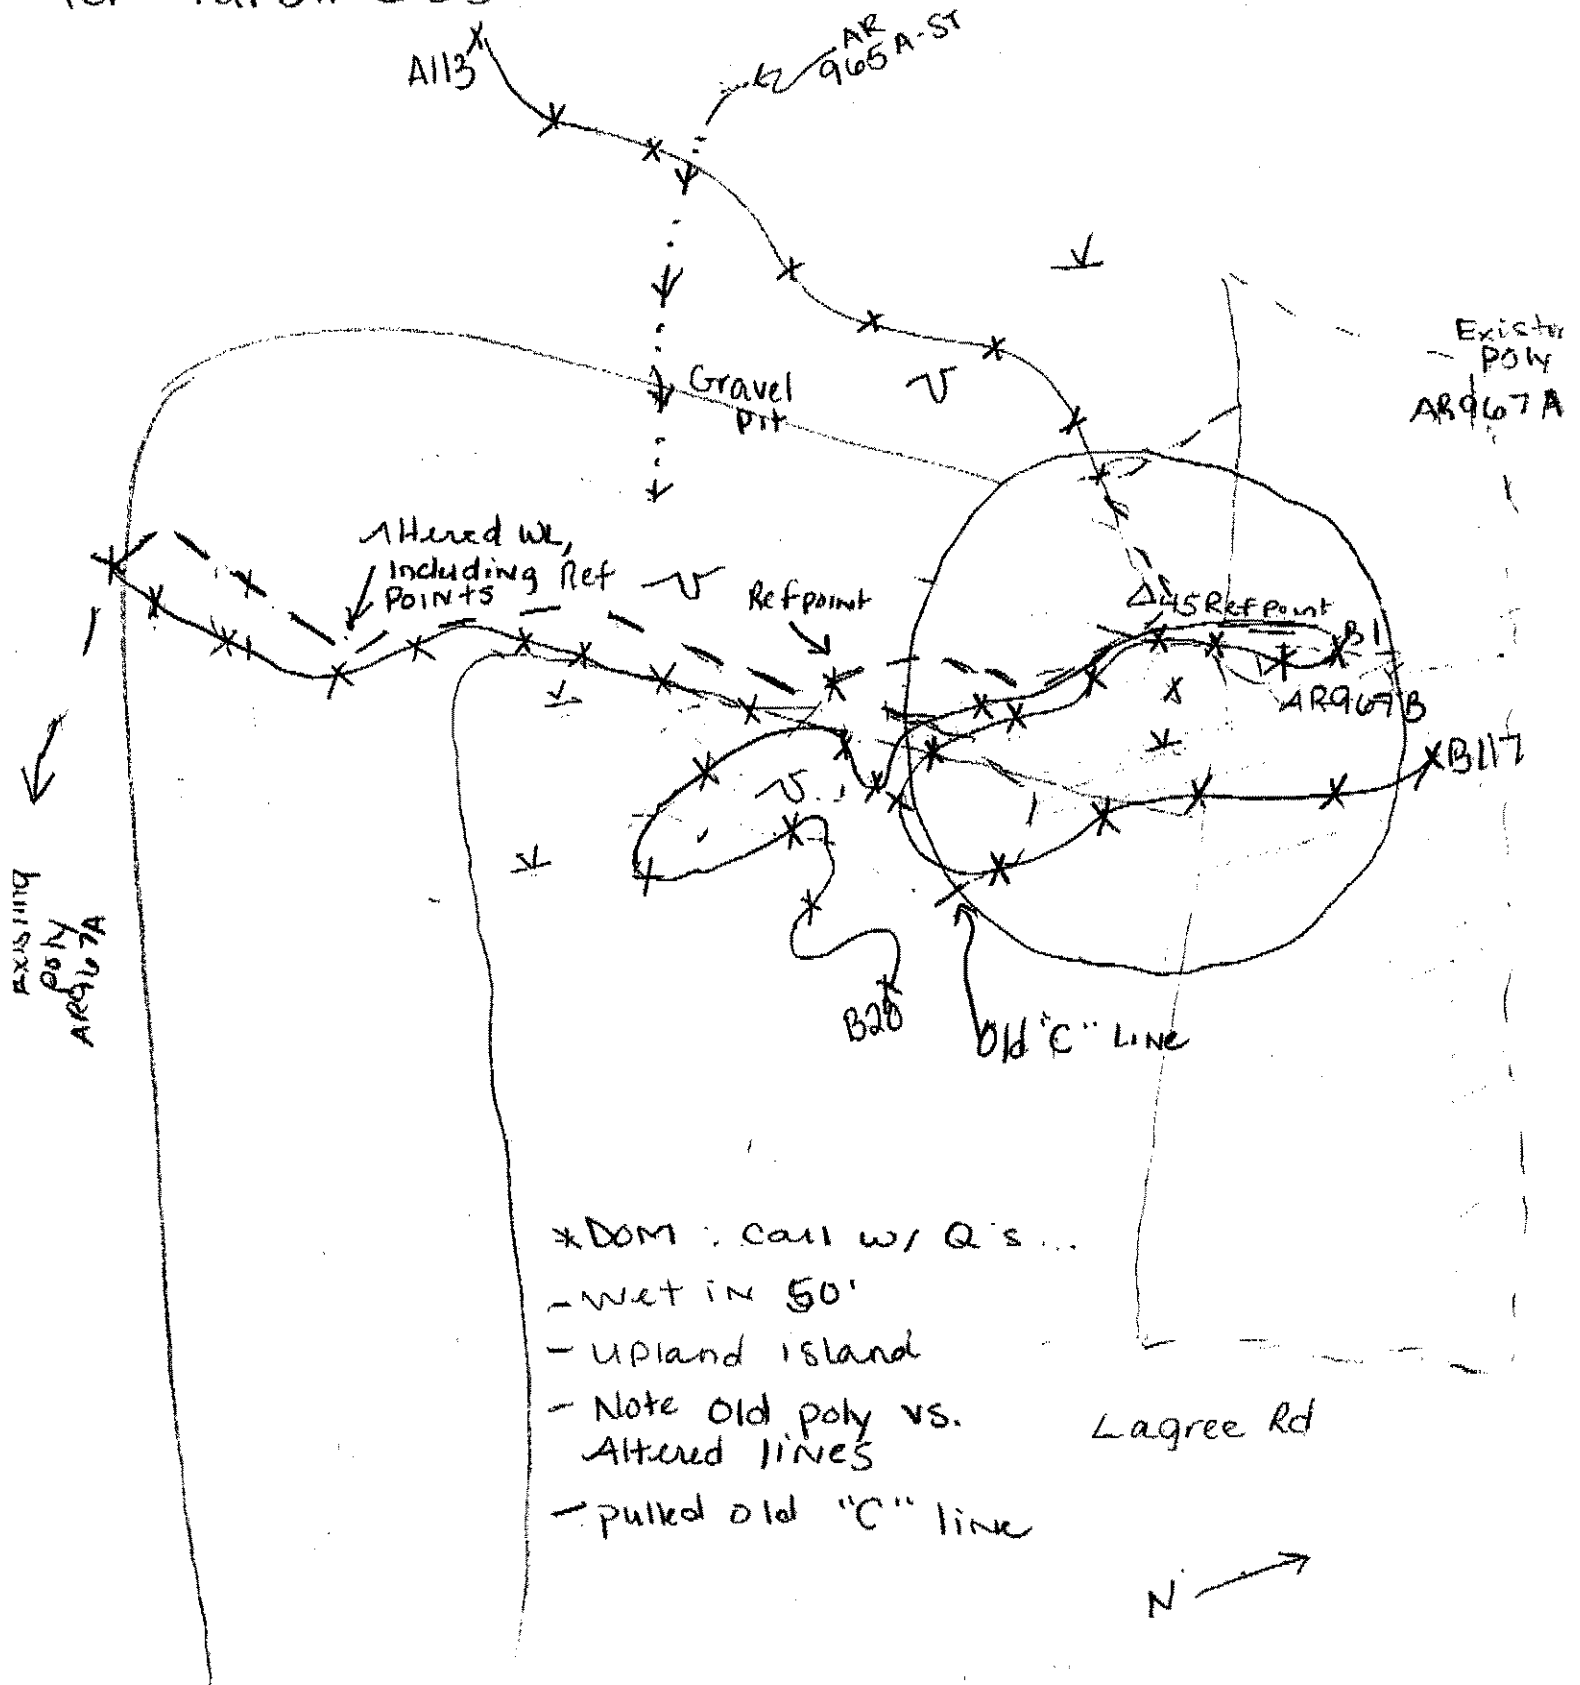 A113
AR
965A-ST
Gravel
pit
Existin
Poly
AR967A
Altered WL,
Including Ref
Points
Refpoint
Δ45 Refpoint
B1
AR967B
B117
Existing
Poly
AR967A
B20
Old "C" Line
*DOM: Call w/ Q's...
- Wet in 50'
- Upland island
- Note Old poly vs.
Altered lines
- pulled old "C" line
Lagree Rd
N